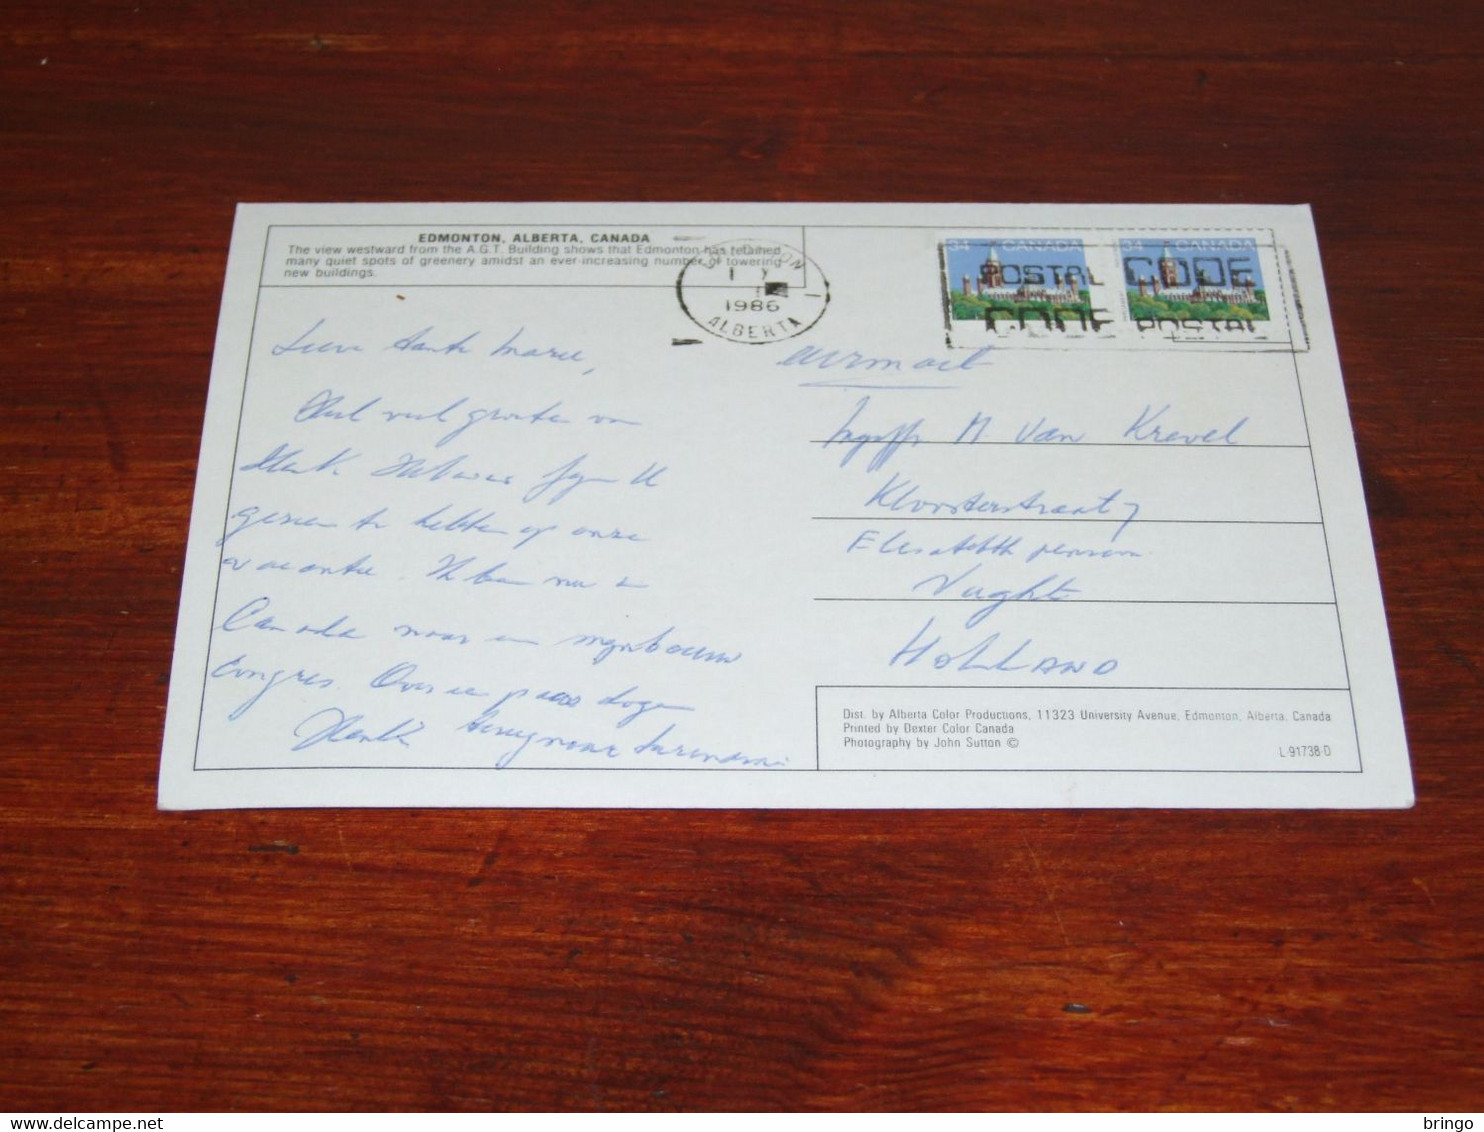 EDMONTON, ALBERTA, CANADA
The view westward from the A.G.T. Building shows that Edmonton has retained
many quiet spots of greenery amidst an ever-increasing number of towering
new buildings.
EDMONTON
1986
ALBERTA
34 CANADA
34 CANADA
POSTAL CODE
CODE POSTAL
Lieve tante Maree,
veel groeten van
Henk
gezien te hebben op onze
vacantie. Ik ben nu in
Canada voor een mijnbouw
Congres. Over een paar dagen
Henk terug naar Suriname
airmail
M. Van Krevel
Kloosterstraat 7
Vught
HOLLAND
Dist. by Alberta Color Productions, 11323 University Avenue, Edmonton, Alberta, Canada
Printed by Dexter Color Canada
Photography by John Sutton ©
L-91738-D
delcampe.net
bringo